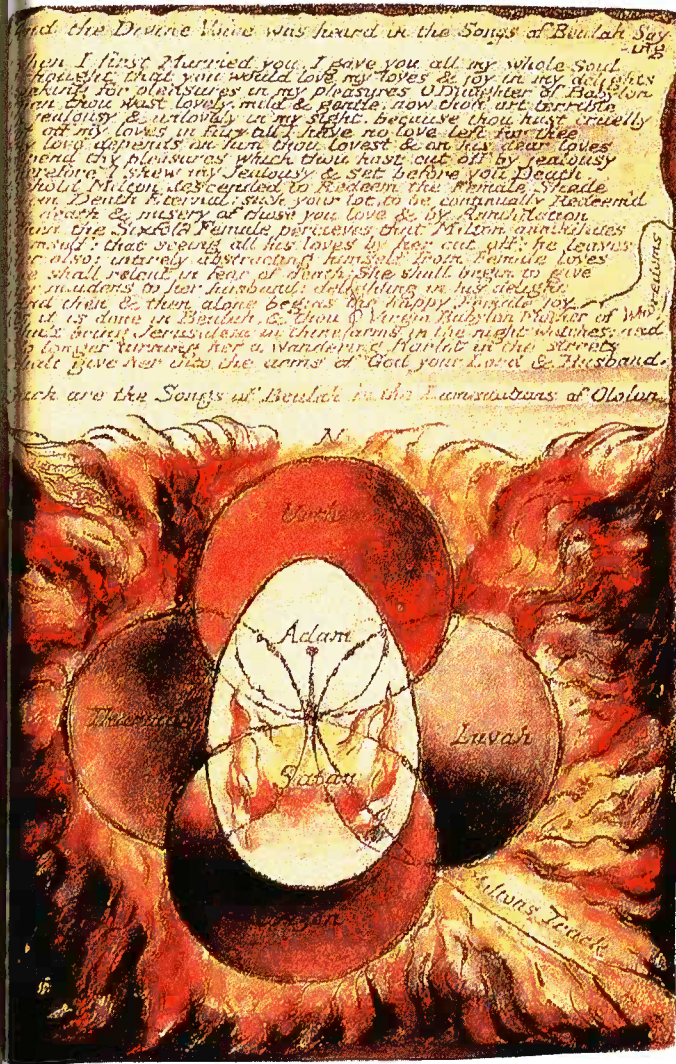 And the Divine Voice was heard in the Songs of Beulah Say
-ing
When I first Married you, I gave you all my whole Soul
thought that you would love my loves & joy in my delights
Seeking for pleasures in my pleasures O Daughter of Babylon
Then thou wast lovely, mild & gentle. now thou art terrible
jealousy & unlovely in my sight, because thou hast cruelly
off my loves in fury till I have no love left for thee
love depends on him thou lovest & on his dear loves
pend thy pleasures which thou hast cut off by jealousy
Therefore I shew my Jealousy & set before you Death.
Behold Milton descended to Redeem the Female Shade
From Death Eternal; such your lot, to be continually Redeem'd
death & misery of those you love & by Annihilation
When the Sixfold Female percieves that Milton annihilates
himself: that seeing all his loves by her cut off: he leaves
also: intirely abstracting himself from Female loves
She shall relent in fear of death: She shall begin to give
maidens to her husband: delighting in his delight
And then & then alone begins the happy Female joy
it is done in Beulah, & thou O Virgin Babylon Mother of Who
redoms
bring Jerusalem in thine arms in the night watches; and
longer turning her a wandering Harlot in the streets
Shalt give her into the arms of God your Lord & Husband.
Such are the Songs of Beulah in the Lamentations of Ololon.
N
Urthona
Adam
Tharmas
Luvah
Satan
Urizen
Miltons Track